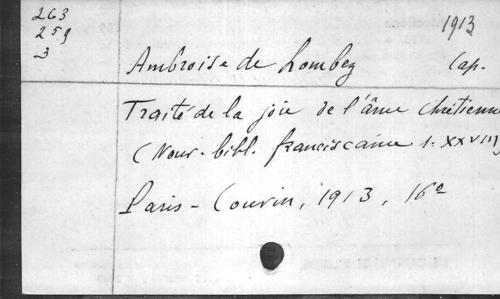 263
259
3
1913
Ambroise de Lombez Cap.
Traité de la joie de l'âme chrétienne
(Nouv. bibl. franciscaine 1. XXVIII)
Paris - Couvin, 1913, 16°